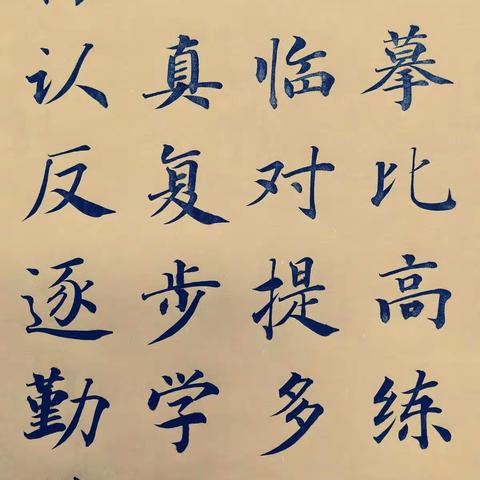 认真临摹
反复对比
逐步提高
勤学多练